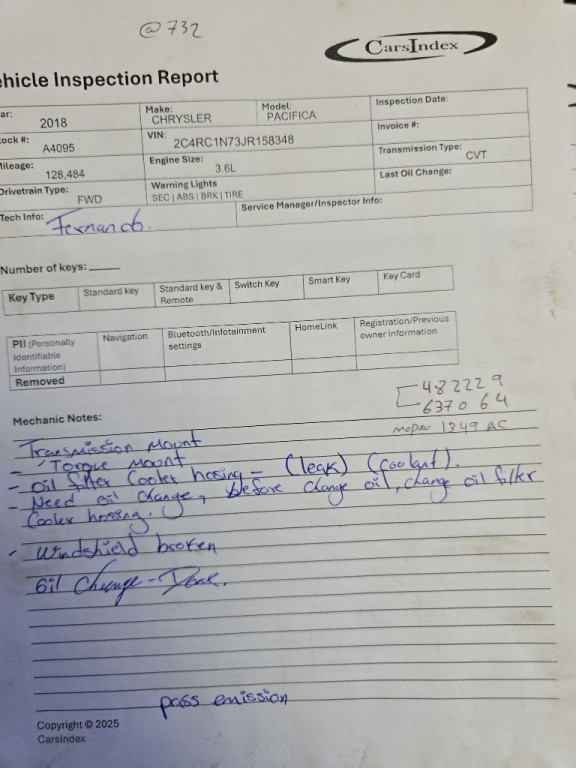 @ 732
CarsIndex
ehicle Inspection Report
ar: 2018
Make: CHRYSLER
Model: PACIFICA
Inspection Date:
ock #: A4095
VIN: 2C4RC1N73JR158348
Invoice #:
ileage: 128,484
Engine Size: 3.6L
Transmission Type: CVT
Drivetrain Type: FWD
Warning Lights
SEC | ABS | BRK | TIRE
Last Oil Change:
Tech Info: Fernando.
Service Manager/Inspector Info:
Number of keys:
Key Type
Standard key
Standard key & Remote
Switch Key
Smart Key
Key Card
PII (Personally Identifiable Information)
Navigation
Bluetooth/Infotainment settings
HomeLink
Registration/Previous owner Information
Removed
482229
637064
mopar 1349 AC
Mechanic Notes:
Transmission Mount
- Torque Mount
- oil filter Cooler hosing - (leak) (coolant).
- Need oil change, before change oil, change oil filter
Cooler hosing.
- Windshield broken
Oil Change - Done.
pass emission
Copyright © 2025
CarsIndex